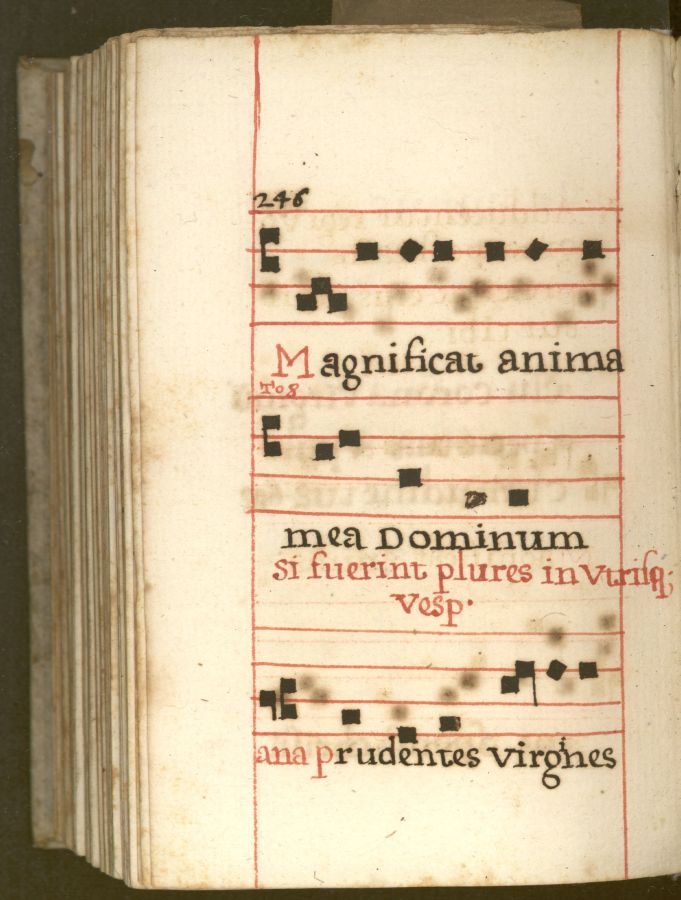 246
Magnificat anima
To 8
mea Dominum
si fuerint plures in utrisq;
vesp.
ana prudentes virgines